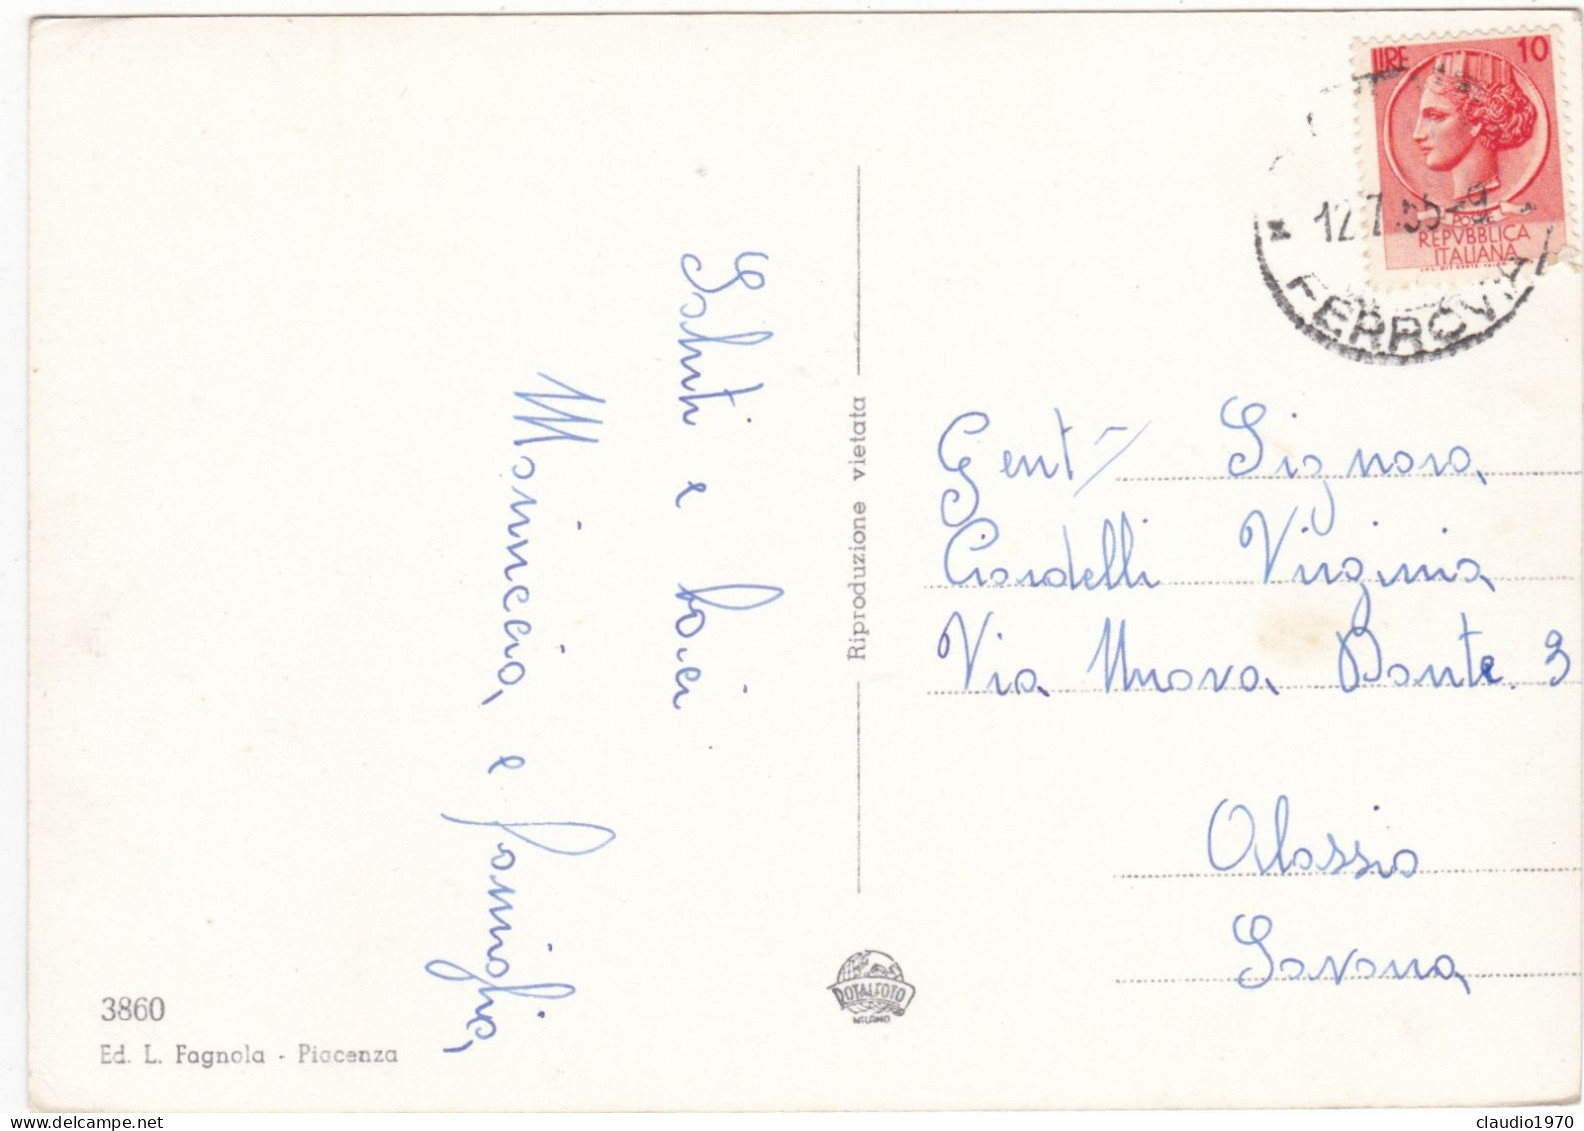 Saluti e baci
Marinccia e famiglia,
Riproduzione vietata
3860
Ed. L. Fagnola - Piacenza
ROTALFOTO
MILANO
LIRE 10
POSTE
REPVBBLICA
ITALIANA
12.7.55-9
FERROVIA
Gent Signora
Ciardelli Virginia
Via Nuova Dante. 3
Alassio
Savona
claudio1970